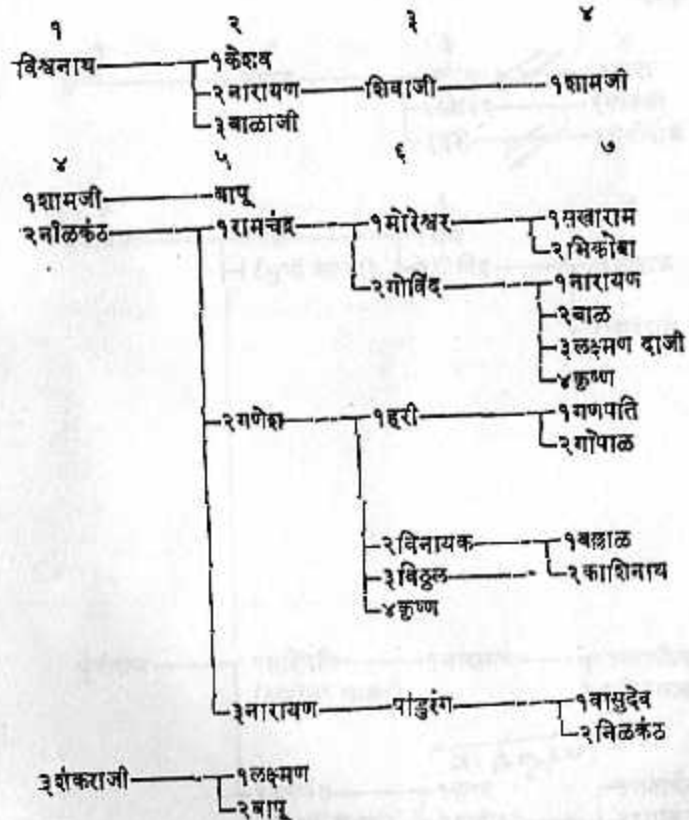 १ २ ३ ४
विश्वनाथ १केशव
२नारायण शिवाजी १शामजी
३बाळाजी
४ ५ ६ ७
१शामजी बापू
२नीळकंठ १रामचंद्र १मोरेश्वर १सखाराम
२भिकोबा
२गोविंद १नारायण
२बाळ
३लक्ष्मण दाजी
४कृष्ण
२गणेश १हरी १गणपति
२गोपाळ
२विनायक १बल्लाळ
३विठ्ठल २काशिनाथ
४कृष्ण
३नारायण पांडुरंग १वासुदेव
२निळकंठ
३शंकराजी १लक्ष्मण
२बापू